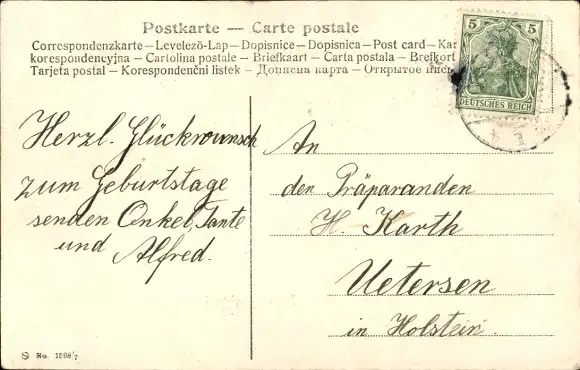 Postkarte — Carte postale
Correspondenzkarte — Levelező-Lap — Dopisnice — Dopisnica — Post card — Kar
korespondencyjna — Cartolina postale — Briefkaart — Carta postala — Brefkort
Tarjeta postal — Korespondenčni listek — Дописна карта — Открытое
5 5
DEUTSCHES REICH
Herzl. Glückwunsch
zum Geburtstage
senden Onkel, Tante
und Alfred.
An
den Präparanden
H. Karth
Uetersen
in Holstein.
No. 1598/7